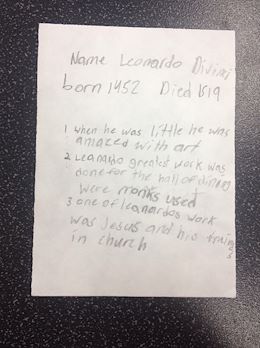 Name Leonardo Divini
born 1452 Died 1519
1 when he was little he was
amazed with art
2 Leanardo greatest work was
done for the hall of dining
were monks used
3 one of leanardos work
was Jesus and his
in church